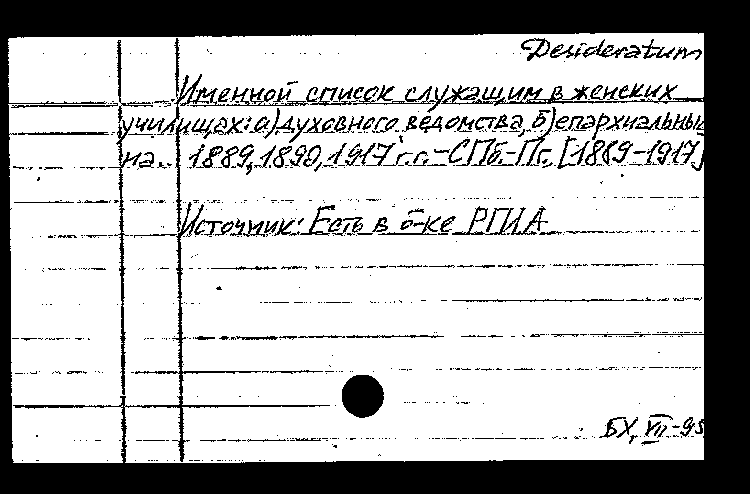 Desideratum
Именной список служащим в женских
училищах: а) духовного ведомства, б) епархиальны
на.. 1889, 1890, 1917 г.г. - СПб.-Пг. [1889-1917]
Источник: Есть в б-ке РГИА
БХ, VII-95